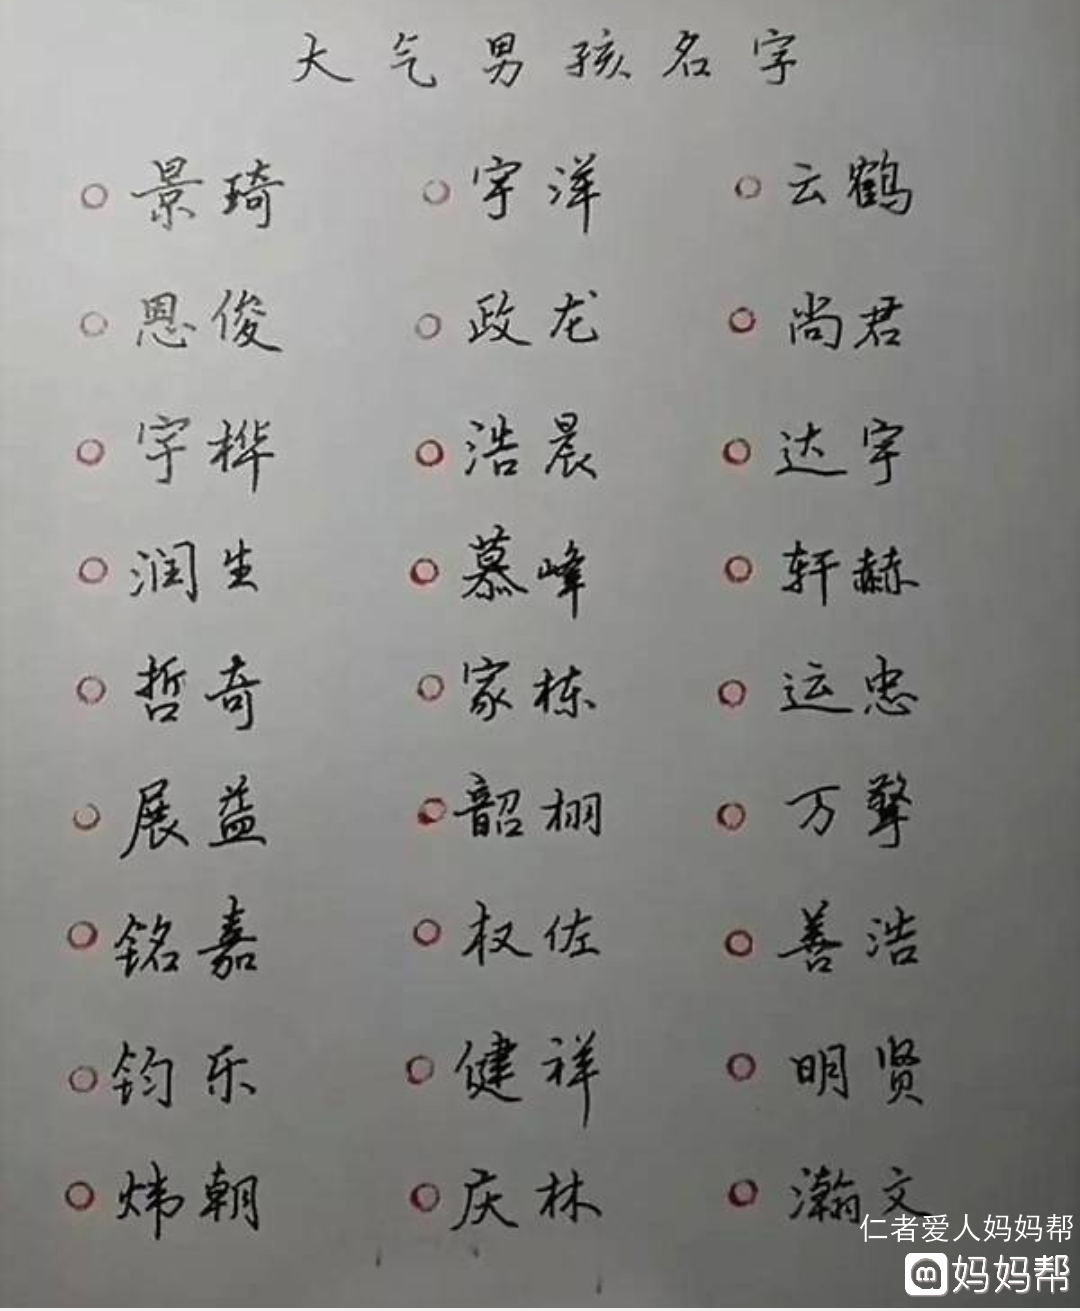 大气男孩名字
景琦 宇洋 云鹤
恩俊 政龙 尚君
宇桦 浩晨 达宇
润生 慕峰 轩赫
哲奇 家栋 运忠
展益 韶栩 万擎
铭嘉 权佐 善浩
钧乐 健祥 明贤
炜朝 庆林 瀚文
仁者爱人妈妈帮
妈妈帮